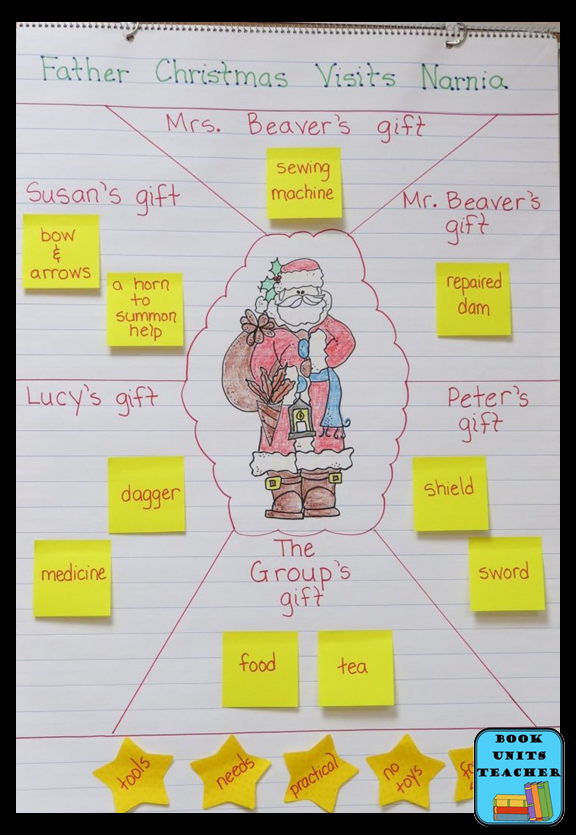 Father Christmas Visits Narnia
Mrs. Beaver's gift
sewing
machine
Susan's gift
bow
&
arrows
a horn
to
summon
help
Mr. Beaver's
gift
repaired
dam
Lucy's gift
dagger
medicine
Peter's
gift
shield
sword
The
Group's
gift
food
tea
tools
needs
practical
no
toys
BOOK
UNITS
TEACHER